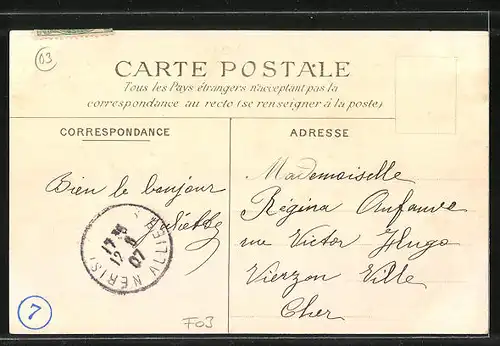 03
CARTE POSTALE
Tous les Pays étrangers n'acceptant pas la
correspondance au recto (se renseigner à la poste)
CORRESPONDANCE
ADRESSE
Bien le bonjour
Juliette
Mademoiselle
Régina
rue Victor Hugo
Vierzon Ville
Cher
NERIS
ALLIER
17
12
07
7
F03